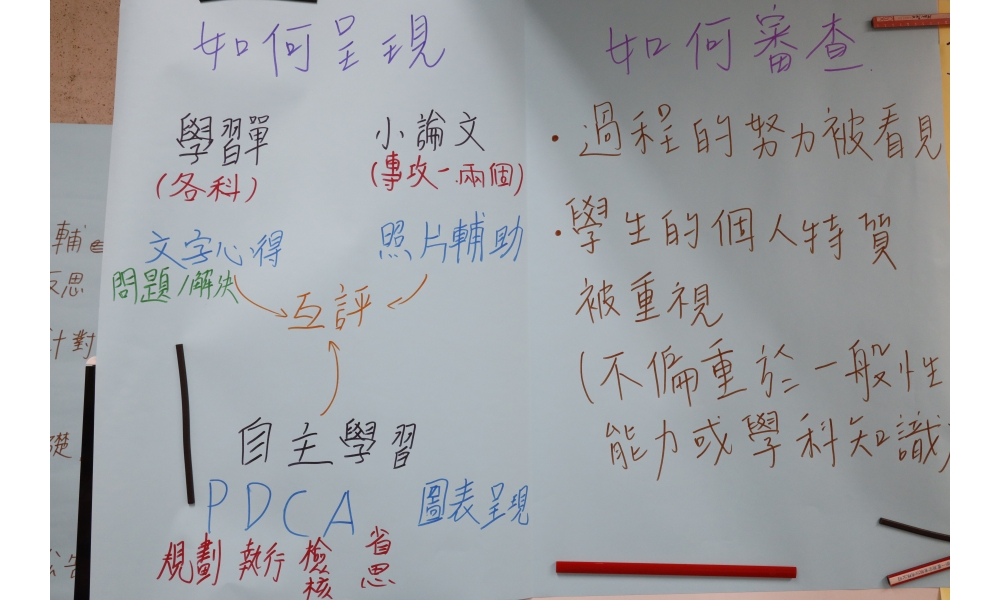 如何呈現
學習單
(各科)
小論文
(專攻一.兩個)
文字心得
問題/解決
照片輔助
互評
自主學習
PDCA
圖表呈現
規劃 執行 檢核 省思
如何審查
•過程的努力被看見
•學生的個人特質
被重視
(不偏重於一般性
能力或學科知識)
輔
反思
計對
礎
公告